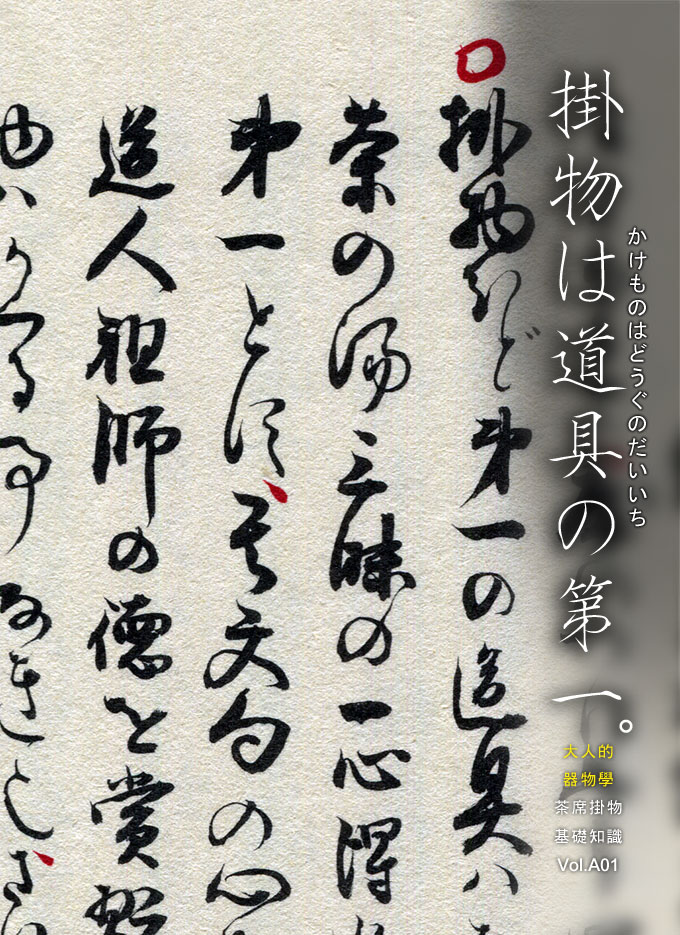 掛物は道具の第一。
かけものはどうぐのだいいち
大人的
器物學
茶席掛物
基礎知識
Vol.A01
掛物ほど第一の道具ハ
茶の湯三昧の一心得
第一とす、其文句の心
道人祖師の徳を賞翫
ハかくる事なき也、さ